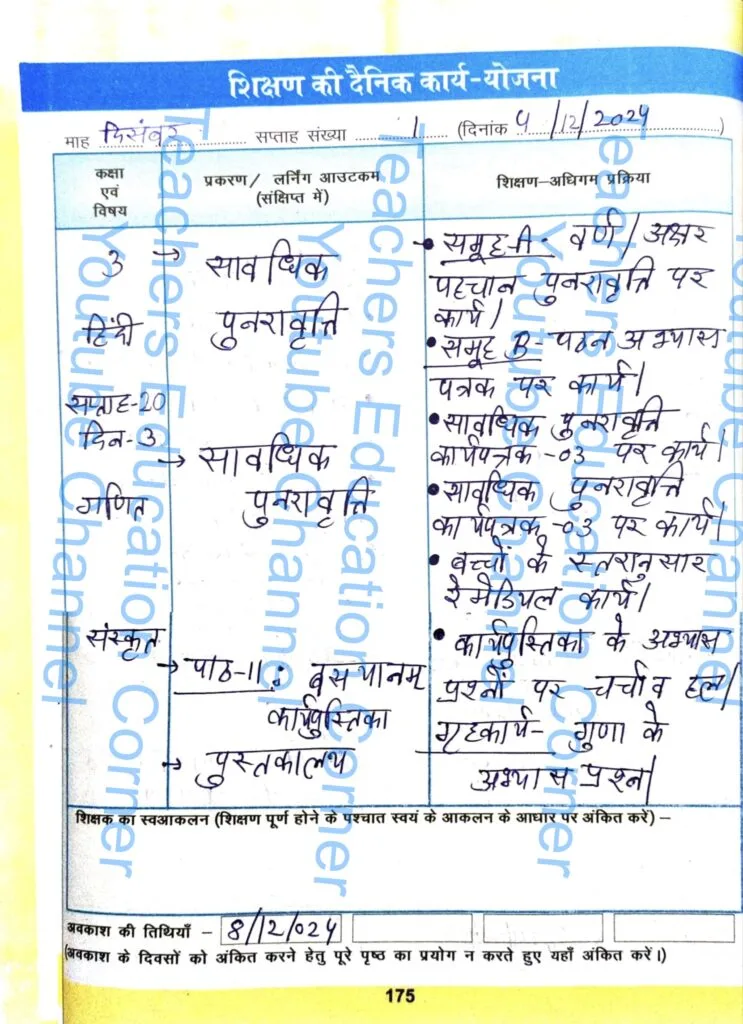 शिक्षण की दैनिक कार्य-योजना
माह दिसंबर सप्ताह संख्या 1 (दिनांक 4/12/2024)
कक्षा एवं विषय
प्रकरण/ लर्निंग आउटकम (संक्षिप्त में)
शिक्षण-अधिगम प्रक्रिया
3
हिंदी
सप्ताह-20
दिन-3
गणित
संस्कृत
→ सावधिक
पुनरावृत्ति
→ सावधिक
पुनरावृत्ति
→ पाठ-11: बसयानम्
कार्यपुस्तिका
→ पुस्तकालय
• समूह-A- वर्ण/अक्षर
पहचान पुनरावृत्ति पर
कार्य।
• समूह B- पठन अभ्यास
पत्रक पर कार्य।
• सावधिक पुनरावृत्ति
कार्यपत्रक-03 पर कार्य।
• सावधिक पुनरावृत्ति
कार्यपत्रक-03 पर कार्य।
• बच्चों के स्तरानुसार
रेमेडियल कार्य।
• कार्यपुस्तिका के अभ्यास
प्रश्नों पर चर्चा व हल।
गृहकार्य- गुणा के
अभ्यास प्रश्न।
शिक्षक का स्वआकलन (शिक्षण पूर्ण होने के पश्चात स्वयं के आकलन के आधार पर अंकित करें) –
अवकाश की तिथियाँ – 8/12/024
(अवकाश के दिवसों को अंकित करने हेतु पूरे पृष्ठ का प्रयोग न करते हुए यहाँ अंकित करें।)
175
Teachers Education Corner
Youtube Channel
Teachers Education Corner
Youtube Channel
Teachers Education Corner
Youtube Channel